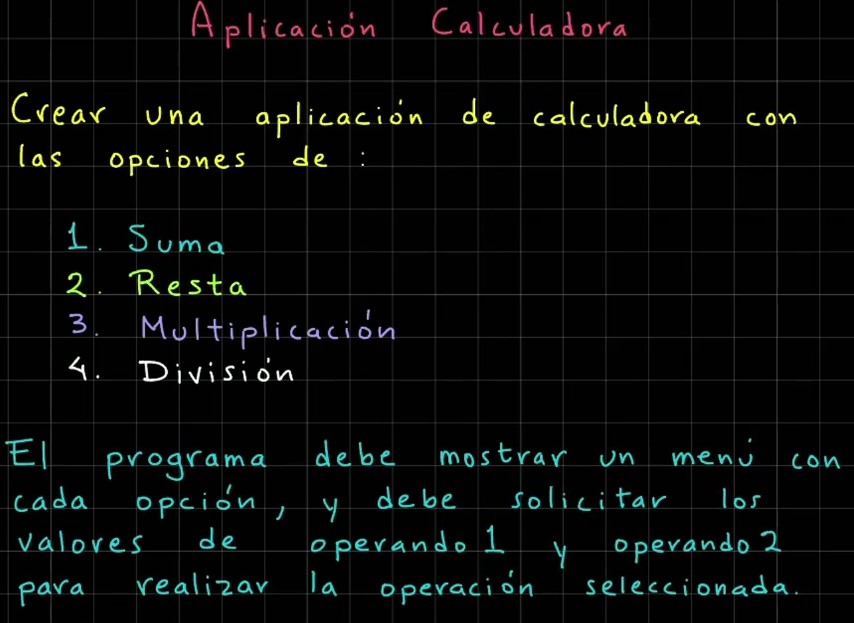 Aplicación Calculadora
Crear una aplicación de calculadora con
las opciones de :
1. Suma
2. Resta
3. Multiplicación
4. División
El programa debe mostrar un menú con
cada opción, y debe solicitar los
valores de operando1 y operando2
para realizar la operación seleccionada.